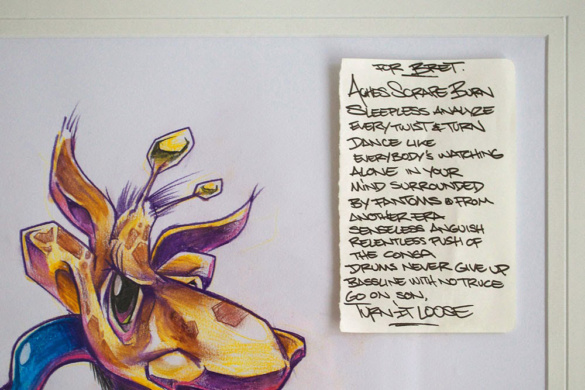 FOR BRET.
ACHES SCRAPE BURN
SLEEPLESS ANALYZE
EVERY TWIST & TURN
DANCE LIKE
EVERYBODY'S WATCHING
ALONE IN YOUR
MIND SURROUNDED
BY FANTOMS FROM
ANOTHER ERA
SENSELESS ANGUISH
RELENTLESS PUSH OF
THE CONGA
DRUMS NEVER GIVE UP
BASSLINE WITH NO TRUCE
GO ON SON,
TURN IT LOOSE